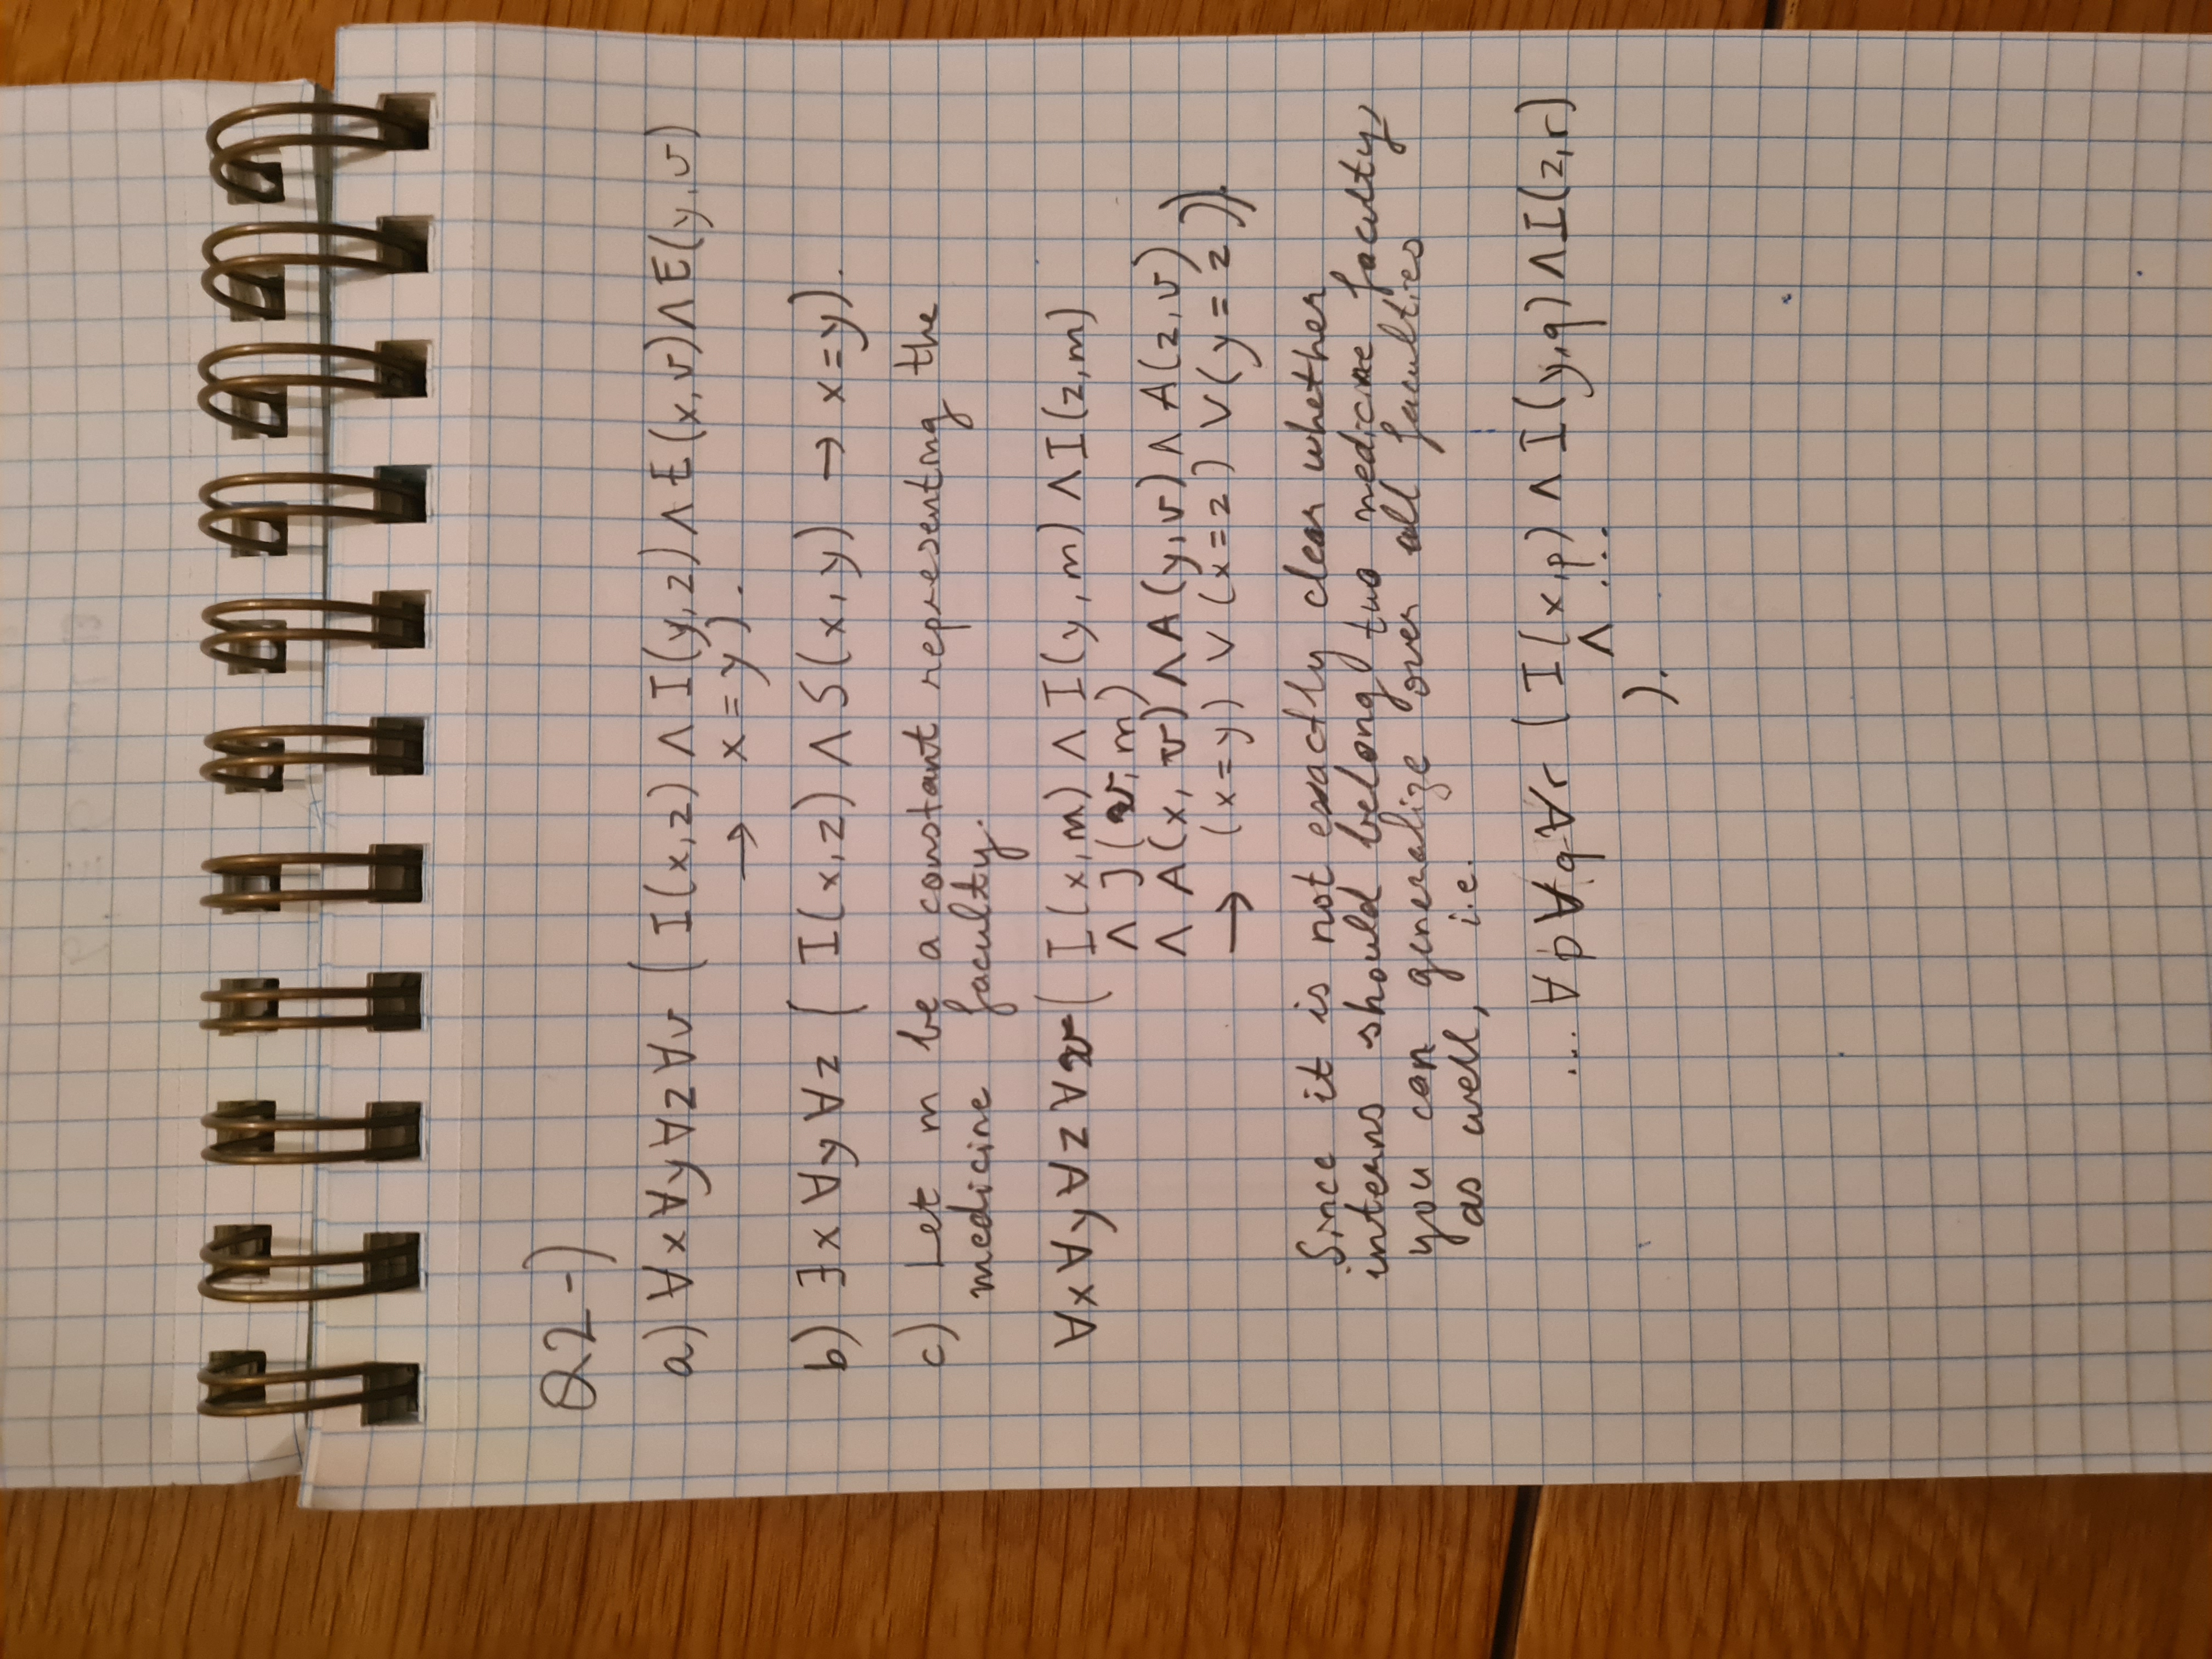 Q2-)
a) ∀x∀y∀z∀v ( I(x,z) ∧ I(y,z) ∧ E(x,v) ∧ E(y,v)
→ x=y).
b) ∃x ∀y ∀z ( I(x,z) ∧ S(x,y) → x=y).
c) Let m be a constant representing the
medicine faculty.
∀x∀y∀z∀v( I(x,m) ∧ I(y,m) ∧ I(z,m)
∧ J(v,m)
∧ A(x,v) ∧ A(y,v) ∧ A(z,v)
→ (x=y) ∨ (x=z) ∨ (y=z)).
Since it is not exactly clear whether
interns should belong two medicine faculty,
you can generalize over all faculties
as well, i.e.
... ∀p∀q∀r ( I(x,p) ∧ I(y,q) ∧ I(z,r)
∧ ...
).